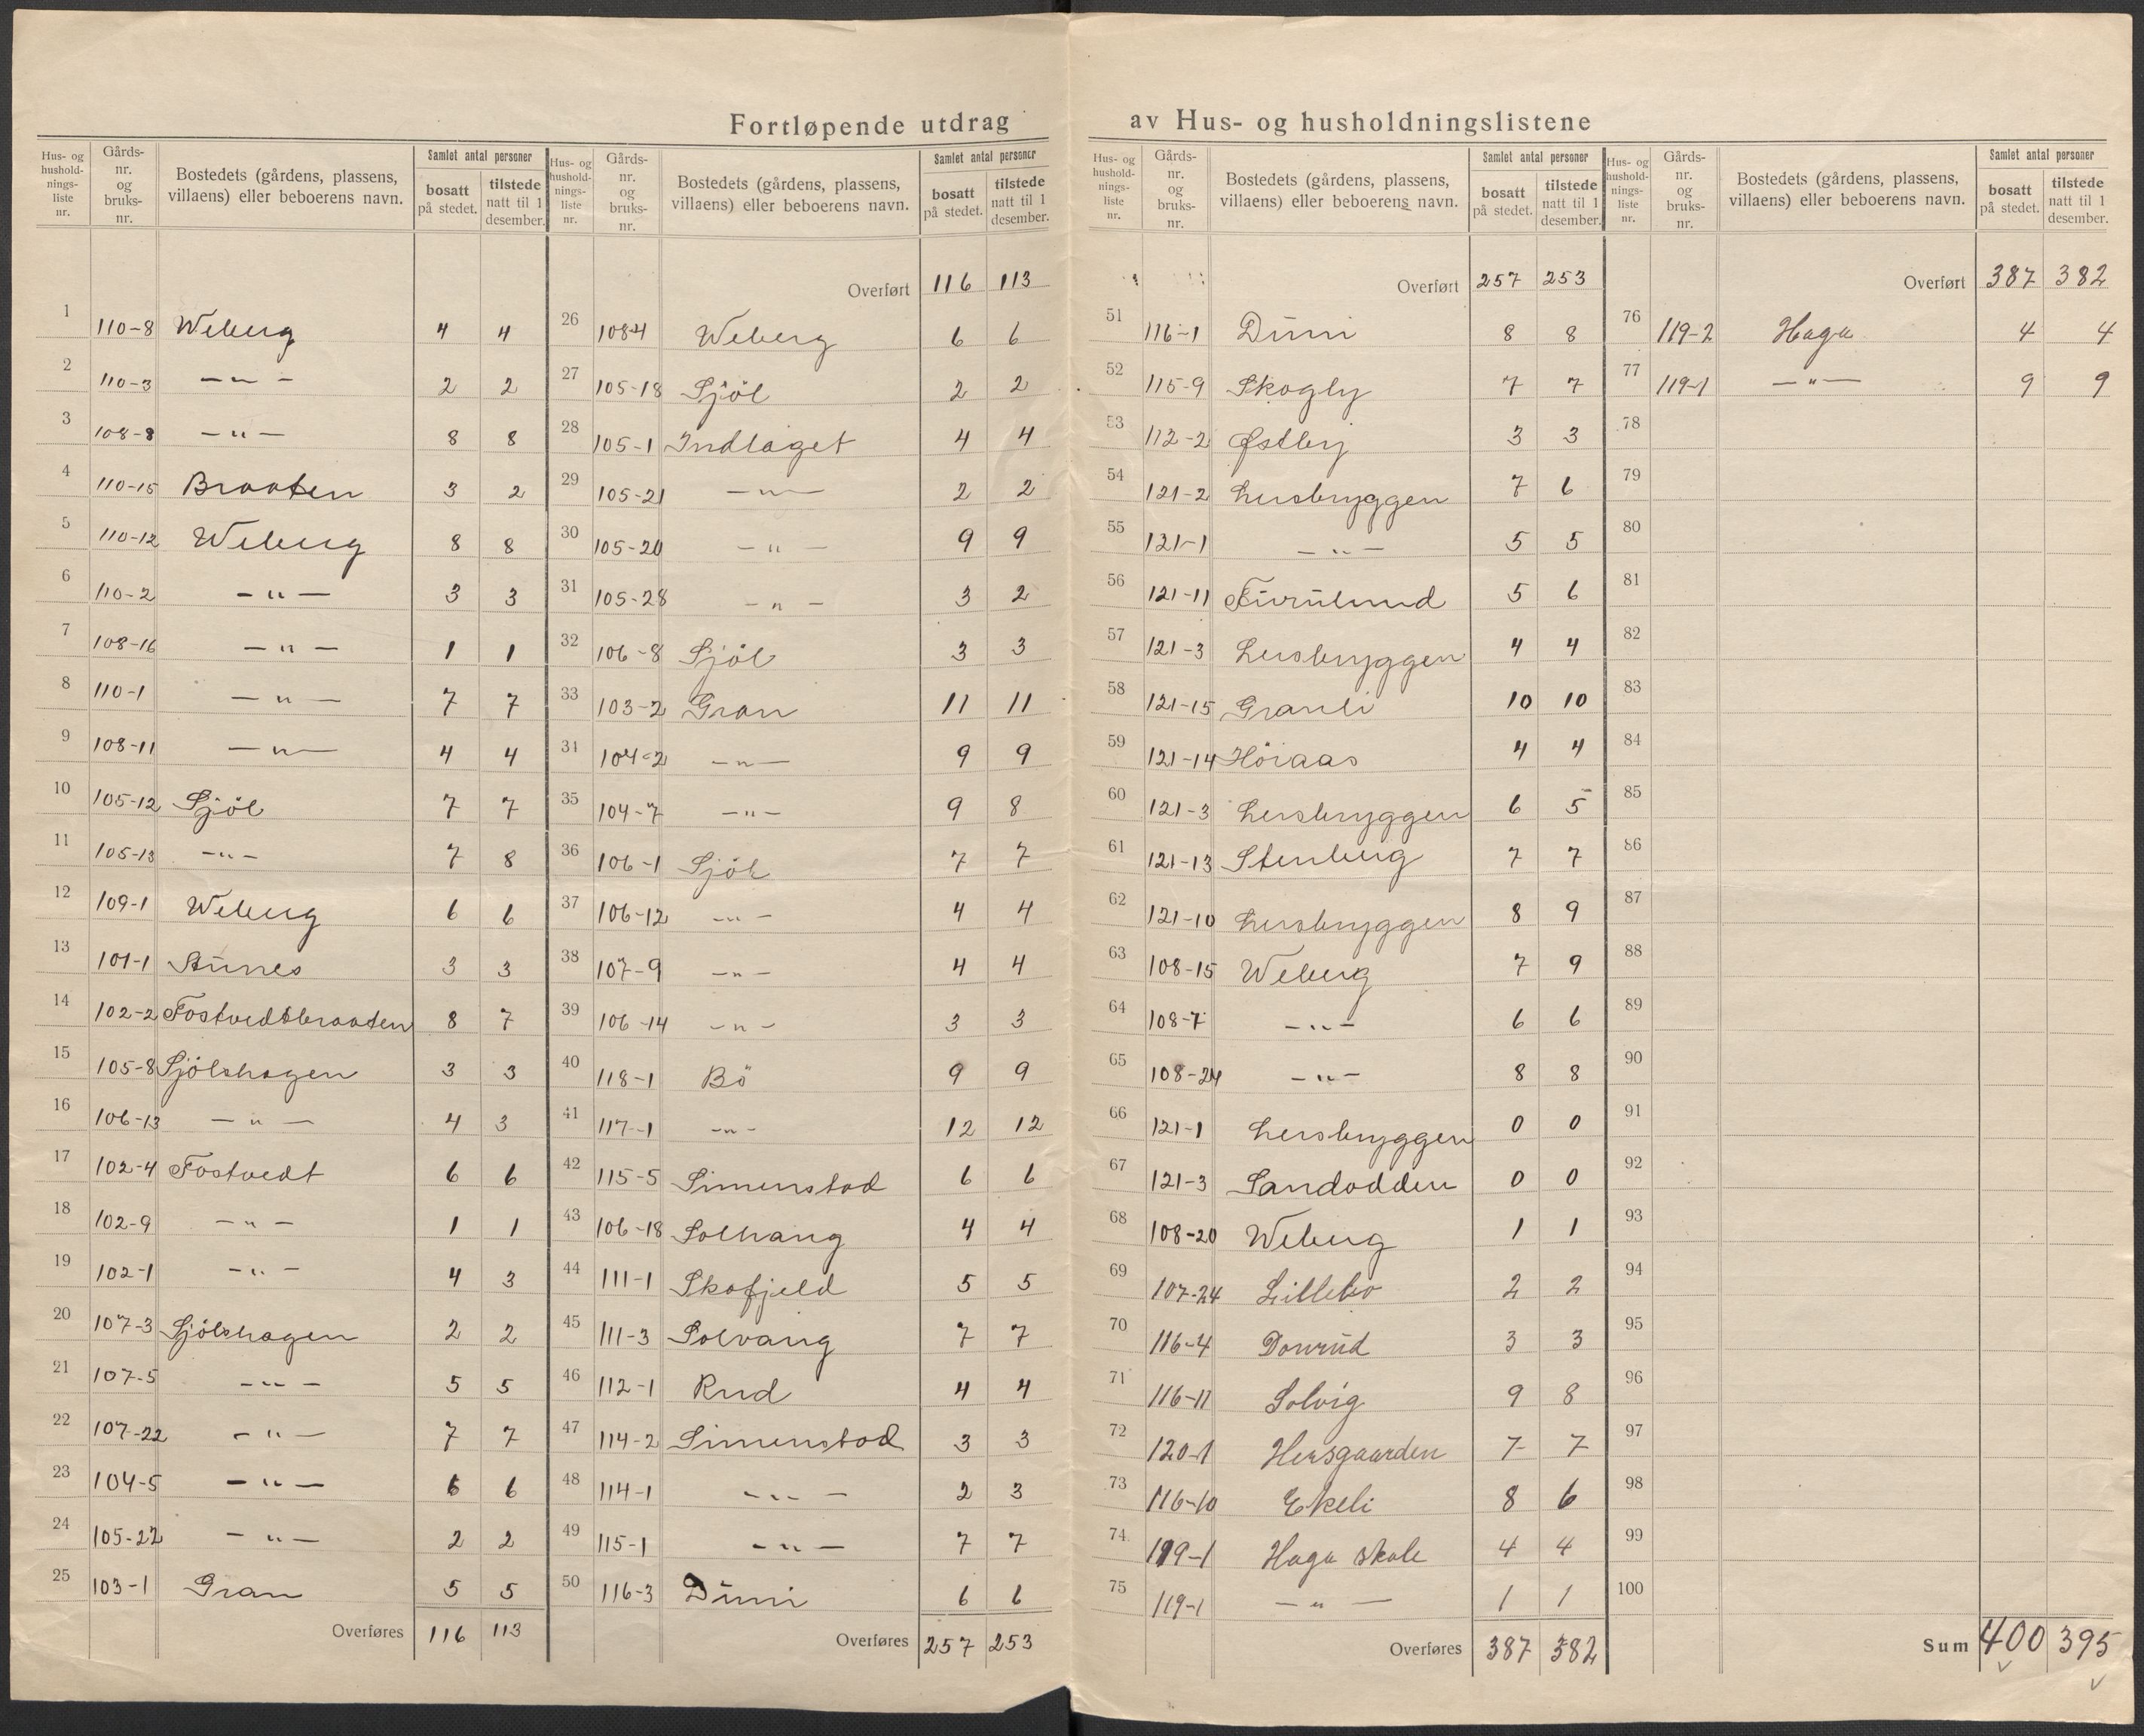 Fortløpende utdrag av Hus- og husholdningslistene
Hus- og hushold-nings-liste nr. Gårds-nr. og bruks-nr. Bostedets (gårdens, plassens, villaens) eller beboerens navn. Samlet antal personer bosatt på stedet. tilstede natt til 1 desember.
1 110-8 Weberg 4 4
2 110-3 — " — 2 2
3 108-8 — " — 8 8
4 110-15 Braaten 3 2
5 110-12 Weberg 8 8
6 110-2 — " — 3 3
7 108-16 — " — 1 1
8 110-1 — " — 7 7
9 108-11 — " — 4 4
10 105-12 Sjöl 7 7
11 105-13 — " — 7 8
12 109-1 Weberg 6 6
13 101-1 Aünes 3 3
14 102-2 Fostvedtbraaten 8 7
15 105-8 Sjölshagen 3 3
16 106-13 — " — 4 3
17 102-4 Fostvedt 6 6
18 102-9 — " — 1 1
19 102-1 — " — 4 3
20 107-3 Sjölshagen 2 2
21 107-5 — " — 5 5
22 107-22 — " — 7 7
23 104-5 — " — 6 6
24 105-22 — " — 2 2
25 103-1 Gran 5 5
Overføres 116 113
Hus- og hushold-nings-liste nr. Gårds-nr. og bruks-nr. Bostedets (gårdens, plassens, villaens) eller beboerens navn. Samlet antal personer bosatt på stedet. tilstede natt til 1 desember.
Overført 116 113
26 108-4 Weberg 6 6
27 105-18 Sjöl 2 2
28 105-1 Indlaget 4 4
29 105-21 — " — 2 2
30 105-20 — " — 9 9
31 105-28 — " — 3 2
32 106-8 Sjöl 3 3
33 103-2 Gran 11 11
34 104-2 — " — 9 9
35 104-7 — " — 9 8
36 106-1 Sjöl 7 7
37 106-12 — " — 4 4
38 107-9 — " — 4 4
39 106-14 — " — 3 3
40 118-1 Bö 9 9
41 117-1 — " — 12 12
42 115-5 Simenstad 6 6
43 106-18 Solhaug 4 4
44 111-1 Skofjeld 5 5
45 111-3 Solvang 7 7
46 112-1 Rud 4 4
47 114-2 Simenstad 3 3
48 114-1 — " — 2 3
49 115-1 — " — 7 7
50 116-3 Düni 6 6
Overføres 257 253
Hus- og hushold-nings-liste nr. Gårds-nr. og bruks-nr. Bostedets (gårdens, plassens, villaens) eller beboerens navn. Samlet antal personer bosatt på stedet. tilstede natt til 1 desember.
Overført 257 253
51 116-1 Düni 8 8
52 115-9 Skogly 7 7
53 112-2 Østby 3 3
54 121-2 Lersbryggen 7 6
55 121-1 — " — 5 5
56 121-11 Fürülund 5 6
57 121-3 Lersbryggen 4 4
58 121-15 Granli 10 10
59 121-14 Höiaas 4 4
60 121-3 Lersbryggen 6 5
61 121-13 Stenberg 7 7
62 121-10 Lersbryggen 8 9
63 108-15 Weberg 7 9
64 108-7 — " — 6 6
65 108-24 — " — 8 8
66 121-1 Lersbryggen 0 0
67 121-3 Sandodden 0 0
68 108-20 Weberg 1 1
69 107-24 Lillebo 2 2
70 116-4 Donrüd 3 3
71 116-11 Solvig 9 8
72 120-1 Hersgaarden 7 7
73 116-10 Ekeli 8 6
74 119-1 Haga skole 4 4
75 119-1 — " — 1 1
Overføres 387 382
Hus- og hushold-nings-liste nr. Gårds-nr. og bruks-nr. Bostedets (gårdens, plassens, villaens) eller beboerens navn. Samlet antal personer bosatt på stedet. tilstede natt til 1 desember.
Overført 387 382
76 119-2 Haga 4 4
77 119-1 — " — 9 9
78
79
80
81
82
83
84
85
86
87
88
89
90
91
92
93
94
95
96
97
98
99
100
Sum 400 395